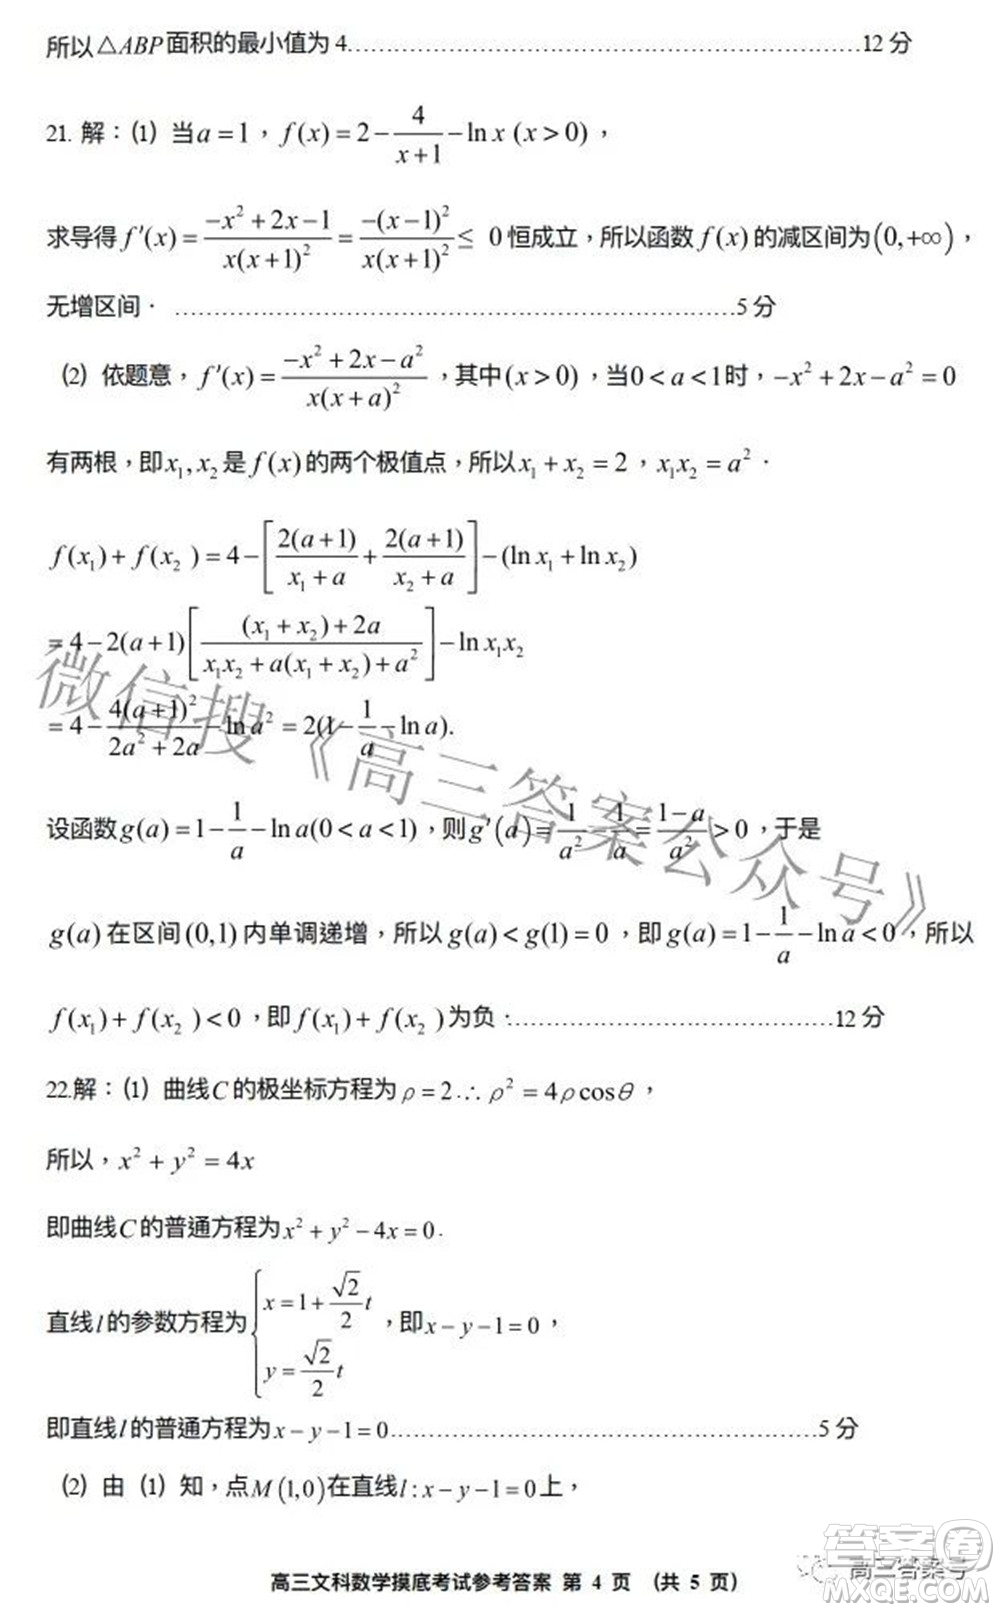 所以△ABP面积的最小值为 4……………………………………………12 分
21. 解：(1) 当 a = 1，f(x) = 2 − 4/(x+1) − ln x (x > 0)，
求导得 f′(x) = (−x² + 2x − 1)/(x(x+1)²) = −(x−1)²/(x(x+1)²) ≤ 0 恒成立，所以函数 f(x) 的减区间为 (0,+∞)，
无增区间． ……………………………………………5 分
(2) 依题意，f′(x) = (−x² + 2x − a²)/(x(x+a)²)，其中 (x > 0)，当 0 < a < 1 时，−x² + 2x − a² = 0
有两根，即 x₁, x₂ 是 f(x) 的两个极值点，所以 x₁ + x₂ = 2，x₁x₂ = a²．
f(x₁) + f(x₂) = 4 − [2(a+1)/(x₁+a) + 2(a+1)/(x₂+a)] − (ln x₁ + ln x₂)
= 4 − 2(a+1)[((x₁+x₂)+2a)/(x₁x₂ + a(x₁+x₂) + a²)] − ln x₁x₂
= 4 − 4(a+1)²/(2a²+2a) − ln a² = 2(1 − 1/a − ln a).
设函数 g(a) = 1 − 1/a − ln a (0 < a < 1)，则 g′(a) = 1/a² − 1/a = (1−a)/a² > 0，于是
g(a) 在区间 (0,1) 内单调递增，所以 g(a) < g(1) = 0，即 g(a) = 1 − 1/a − ln a < 0，所以
f(x₁) + f(x₂) < 0，即 f(x₁) + f(x₂) 为负．……………………………………12 分
22.解：(1) 曲线 C 的极坐标方程为 ρ = 2 ∴ ρ² = 4ρcosθ，
所以，x² + y² = 4x
即曲线 C 的普通方程为 x² + y² − 4x = 0．
直线 l 的参数方程为 { x = 1 + (√2/2)t, y = (√2/2)t，即 x − y − 1 = 0，
即直线 l 的普通方程为 x − y − 1 = 0……………………………………5 分
(2) 由 (1) 知，点 M (1,0) 在直线 l : x − y − 1 = 0 上，
高三文科数学摸底考试参考答案 第 4 页 （共 5 页）
微信搜《高三答案公众号》
答案圈
高三答案号
MXQE.COM